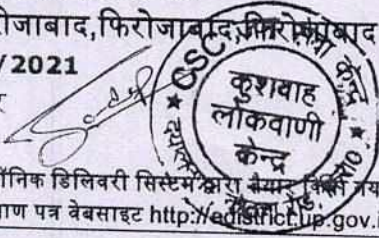 जाबाद,फिरोजाबाद,फिरोजाबाद
/2021
CSC
कुशवाह
लोकवाणी
केन्द्र
ॉनिक डिलिवरी सिस्टम द्वारा तैयार किया गया
ाण पत्र वेबसाइट http://edistrict.up.gov.i